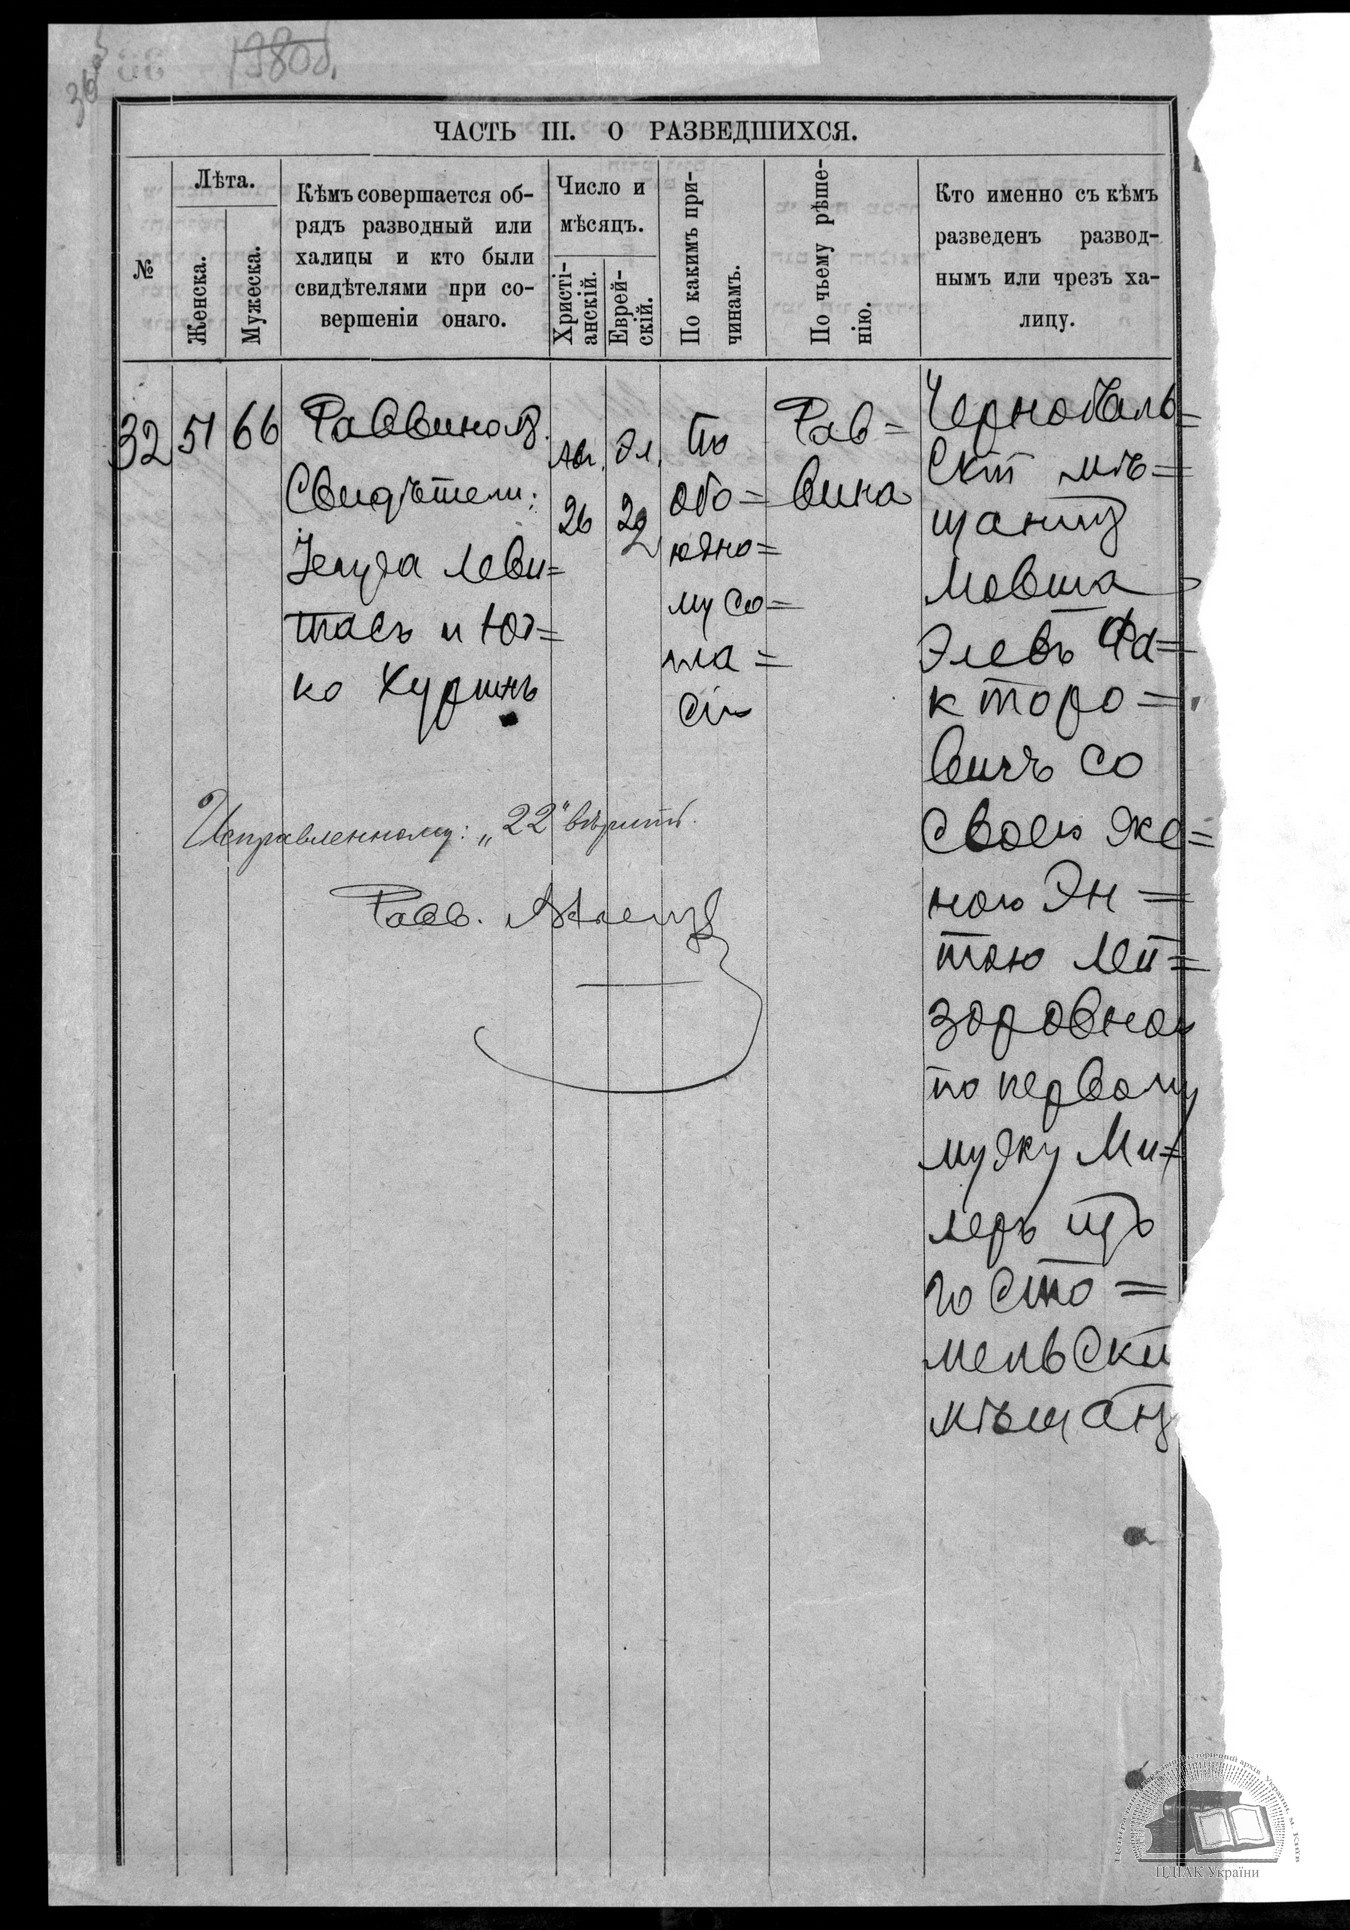 1980б.
ЧАСТЬ III. О РАЗВЕДШИХСЯ.
№
Лѣта.
Женска.
Мужеска.
Кѣмъ совершается об-
рядъ разводный или
халицы и кто были
свидѣтелями при со-
вершеніи онаго.
Число и
мѣсяцъ.
Христі-
анскій.
Еврей-
скій.
По какимъ при-
чинамъ.
По чьему рѣше-
нію.
Кто именно съ кѣмъ
разведенъ развод-
нымъ или чрезъ ха-
лицу.
32
51
66
Раввиномъ.
Свидѣтели:
Іегуда Леви=
тасъ и Юд=
ко Хуринъ
Авг.
26
Эл.
22
По
обо=
юдно=
му со=
гла=
сію
Рав=
вина
Чернобыль=
скій мѣ=
щанинъ
Мовша
Элевъ Фа=
кторо=
вичъ со
своею же=
ною Эн=
тою Лей=
зоровной
по первому
мужу Ми=
леръ изъ
Госто=
мельски
мѣщанъ
Исправленному: „22" вѣрить.
Равв.
ЦДІАК України